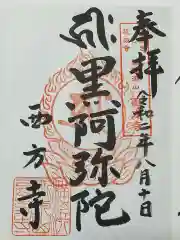 奉拝
令和二年八月十日
黒阿弥陀
西方寺